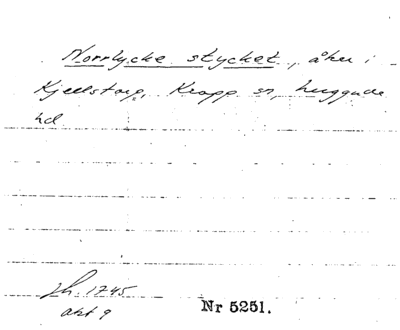 Norrlycke stycket, åker i
Kjellstorp, Kropp sn, Luggude
hd
1745
akt 9
Nr 5251.